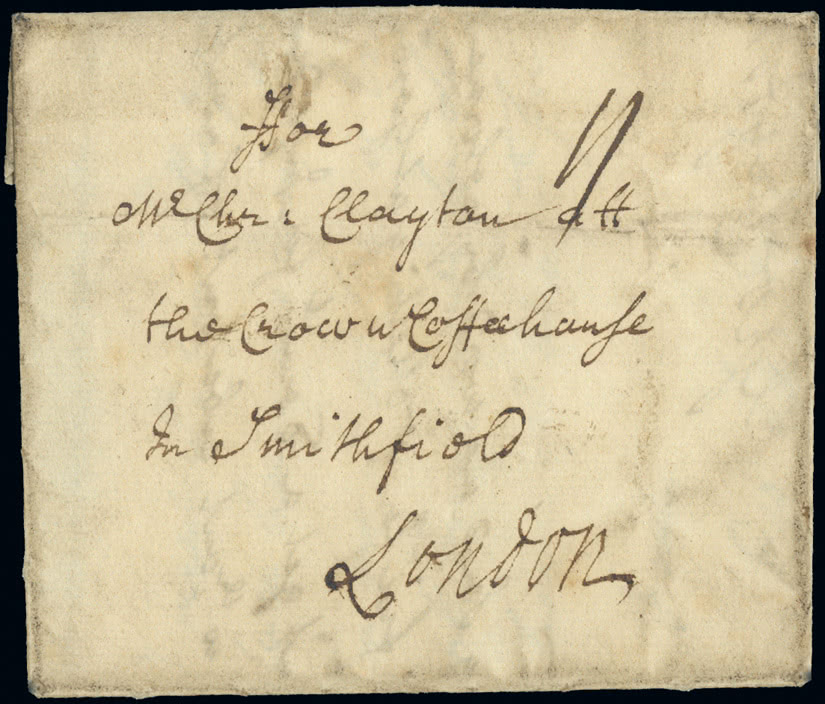 ffor
Mr Chr: Clayton att
the Crown Coffeehouse
In Smithfield
London